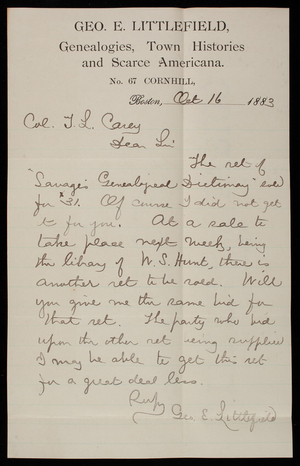 GEO. E. LITTLEFIELD,
Genealogies, Town Histories
and Scarce Americana.
No. 67 CORNHILL,
Boston, Oct 16 1883
Col. T. L. Casey
Dear Sir
The set of
"Savage's Genealogical Dictionary" sold
for $31. Of course I did not get
it for you. At a sale to
take place next week, being
the library of W. S. Hunt, there is
another set to be sold. Will
you give me the same bid for
that set. The party who bid
upon the other set being supplied
I may be able to get this set
for a great deal less.
Respy
Geo. E. Littlefield